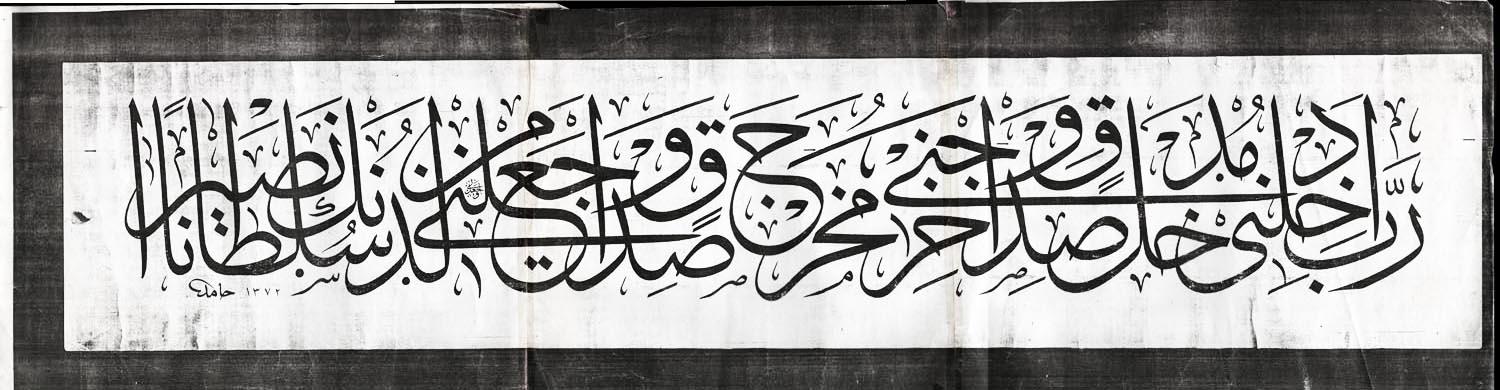 رَبِّ أَدْخِلْنِي مُدْخَلَ صِدْقٍ وَأَخْرِجْنِي مُخْرَجَ صِدْقٍ وَاجْعَلْ لِي مِنْ لَدُنْكَ سُلْطَانًا نَصِيرًا
حامد ١٣٧٢